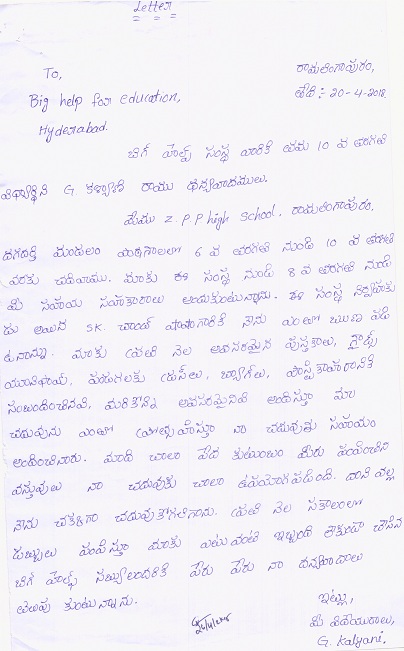 Letter
To,
రామలింగాపురం,
Big help for education,
తేది :- 20-4-2018
Hyderabad.
బిగ్ హెల్ప్ సంస్థ వారికి 10 వ తరగతి
విధ్యార్థిని G. కళ్యాణి రాయు ధన్యవాదములు.
మేము Z.P.P high School, రామలింగాపురం,
దగదర్తి మండలం 6 వ తరగతి నుండి 10 వ తరగతి
వరకు చదివాము. మాకు ఈ సంస్థ నుండి 8 వ తరగతి నుండి
మీ సహాయ సహకారాలు అందుకుంటున్నాను. ఈ సంస్థ నిర్వాహకు
డు అయిన SK. చాంద్ గారికి నేను ఎంతో ఋణ పడి
ఉన్నాను. మాకు ప్రతి నెల అవసరమైన పుస్తకాలు,
యూనిఫామ్, బ్యాగ్‌లు,
సంబంధించినవి, మరికొన్ని అవసరమైనవి అందిస్తూ మా
చదువును ఎంతో ప్రోత్సహిస్తూ నా చదువుకు సహాయం
అందించినారు. మాది చాలా పేద కుటుంబం మీరు పంపించిన
వస్తువులు నా చదువుకు చాలా ఉపయోగపడింది. దాని వల్ల
నేను చక్కగా చదువుకోగలిగాను. ప్రతి నెల సకాలంలో
డబ్బులు పంపిస్తూ మాకు ఎటువంటి ఇబ్బంది లేకుండా చూసిన
బిగ్ హెల్ప్ సభ్యులందరికి పేరు పేరు నా ధన్యవాదాలు
తెలుపు కుంటున్నాను.
ఇట్లు,
మీ విధేయురాలు,
G. Kalyani.